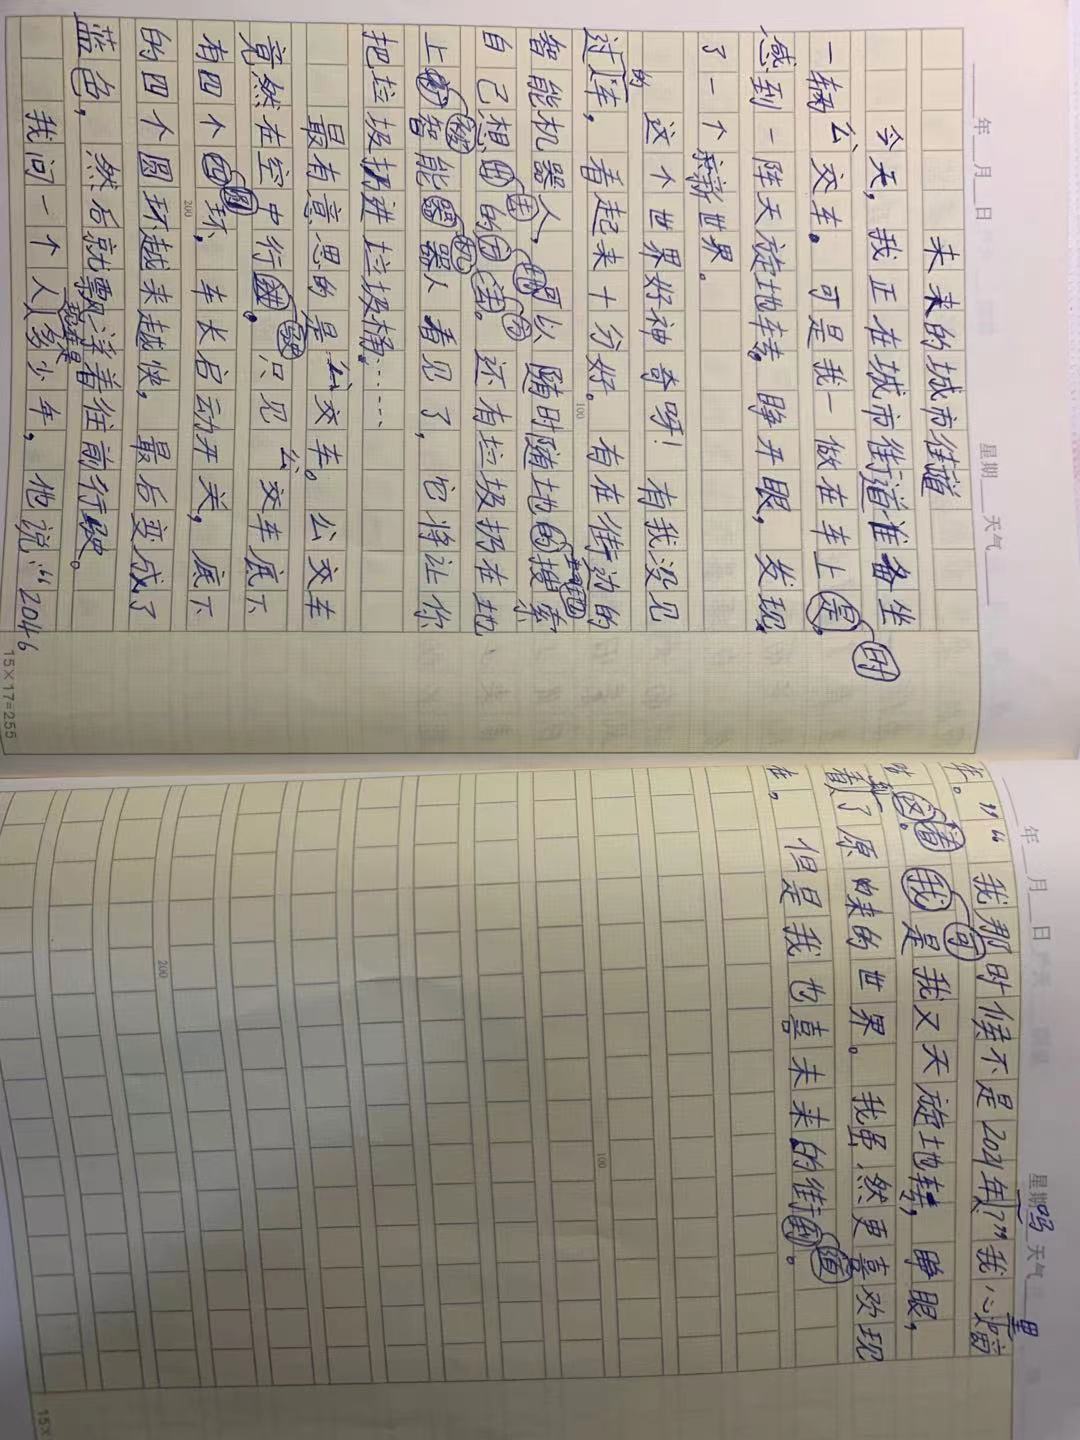 年 月 日
星期 天气
未来的城市街道
今天，我正在城市街道准备坐
一辆公交车。可是我一做在车上是，
时
感到一阵天旋地转。睁开眼，发现
了一个新世界。
这个世界好神奇呀！有我没见
的
过车，看起来十分好。有在街边的
智能机器人，可以随时随地的搜索
自己想去的地方。还有垃圾扔在地
上被智能机器人看见了，它将让你
把垃圾扔进垃圾桶……
最有意思的是公交车。公交车
竟然在空中行驶。只见公交车底下
有四个圆环，车长启动开关，底下
200
的四个圆环越来越快，最后变成了
蓝色，然后就飘浮着往前行驶。
我问一个人多少年，他说：“2046
15×17=255
100
年 月 日
星期 天气
年。”“我那时候不是2021年？”我心
吗
里
可
是我又天旋地转，睁眼，
了原来的世界。我虽然更喜欢现
在。但是我也喜未来的街道。
100
200
15×